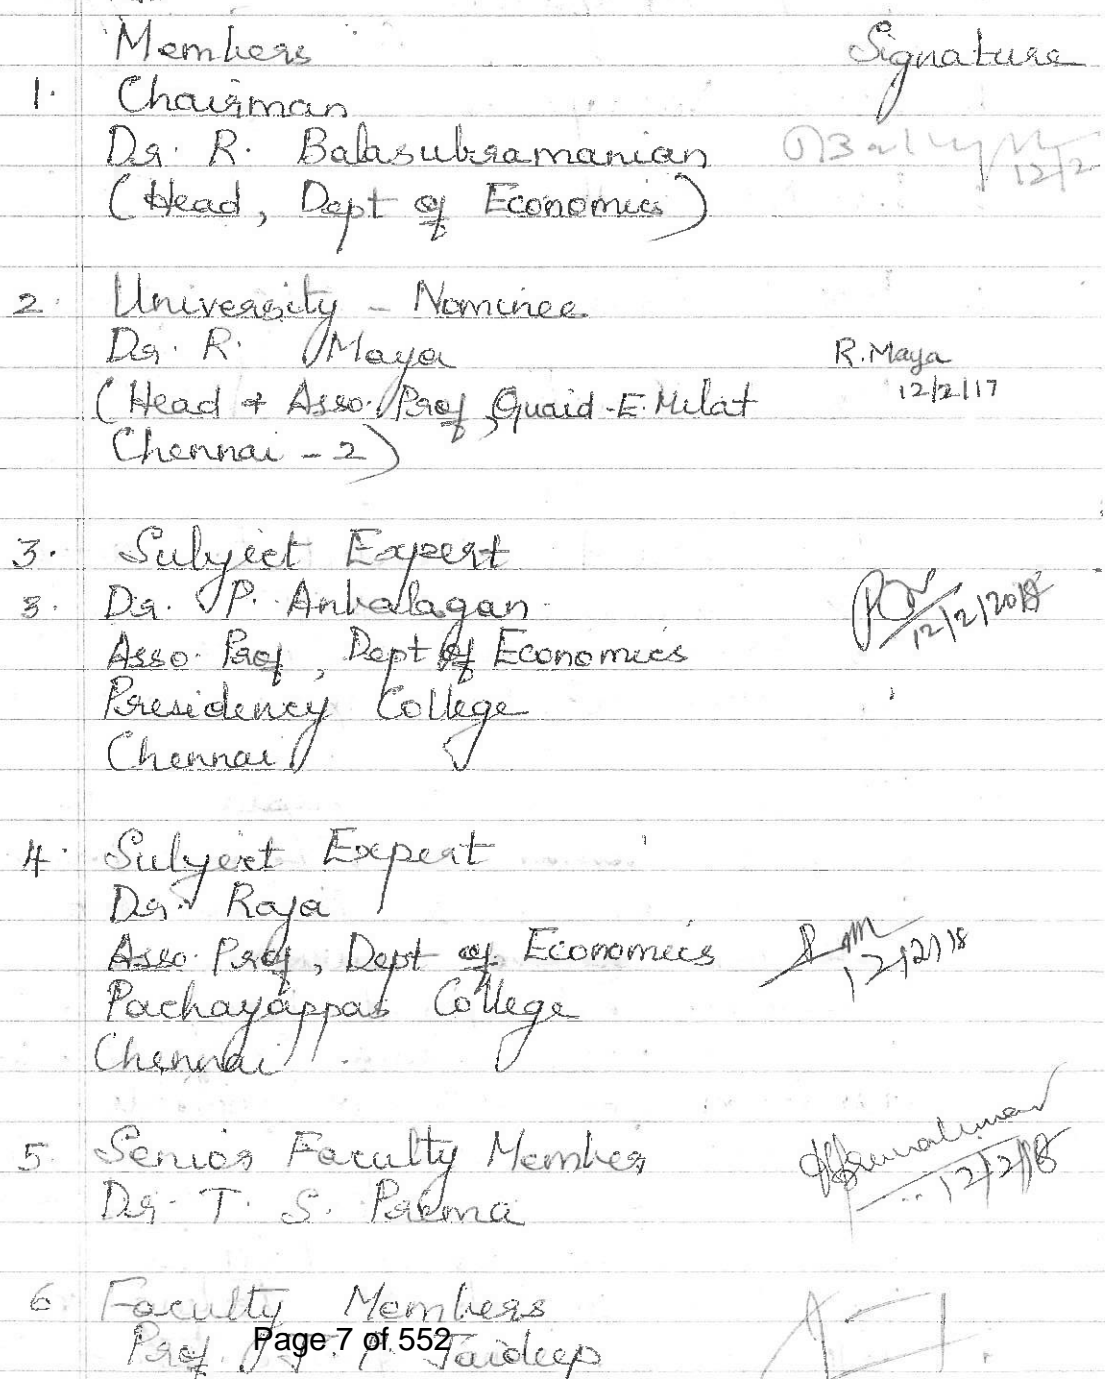 Members Signature
1. Chairman
Dr. R. Balasubramanian
12/2
(Head, Dept of Economics)
2. University - Nominee
Dr. R. Maya R. Maya
(Head & Asso. Prof, Quaid-E-Milat 12/2/17
Chennai - 2)
3. Subject Expert
3. Dr. P. Anbalagan
12/2/2018
Asso. Prof, Dept of Economics
Presidency College
Chennai
4. Subject Expert
Dr. Raja
Asso. Prof, Dept of Economics 12/2/18
Pachayappas College
Chennai
5. Senior Faculty Member
12/2/18
Dr. T. S. Prema
6. Faculty Members
Prof. Jaideep
Page 7 of 552